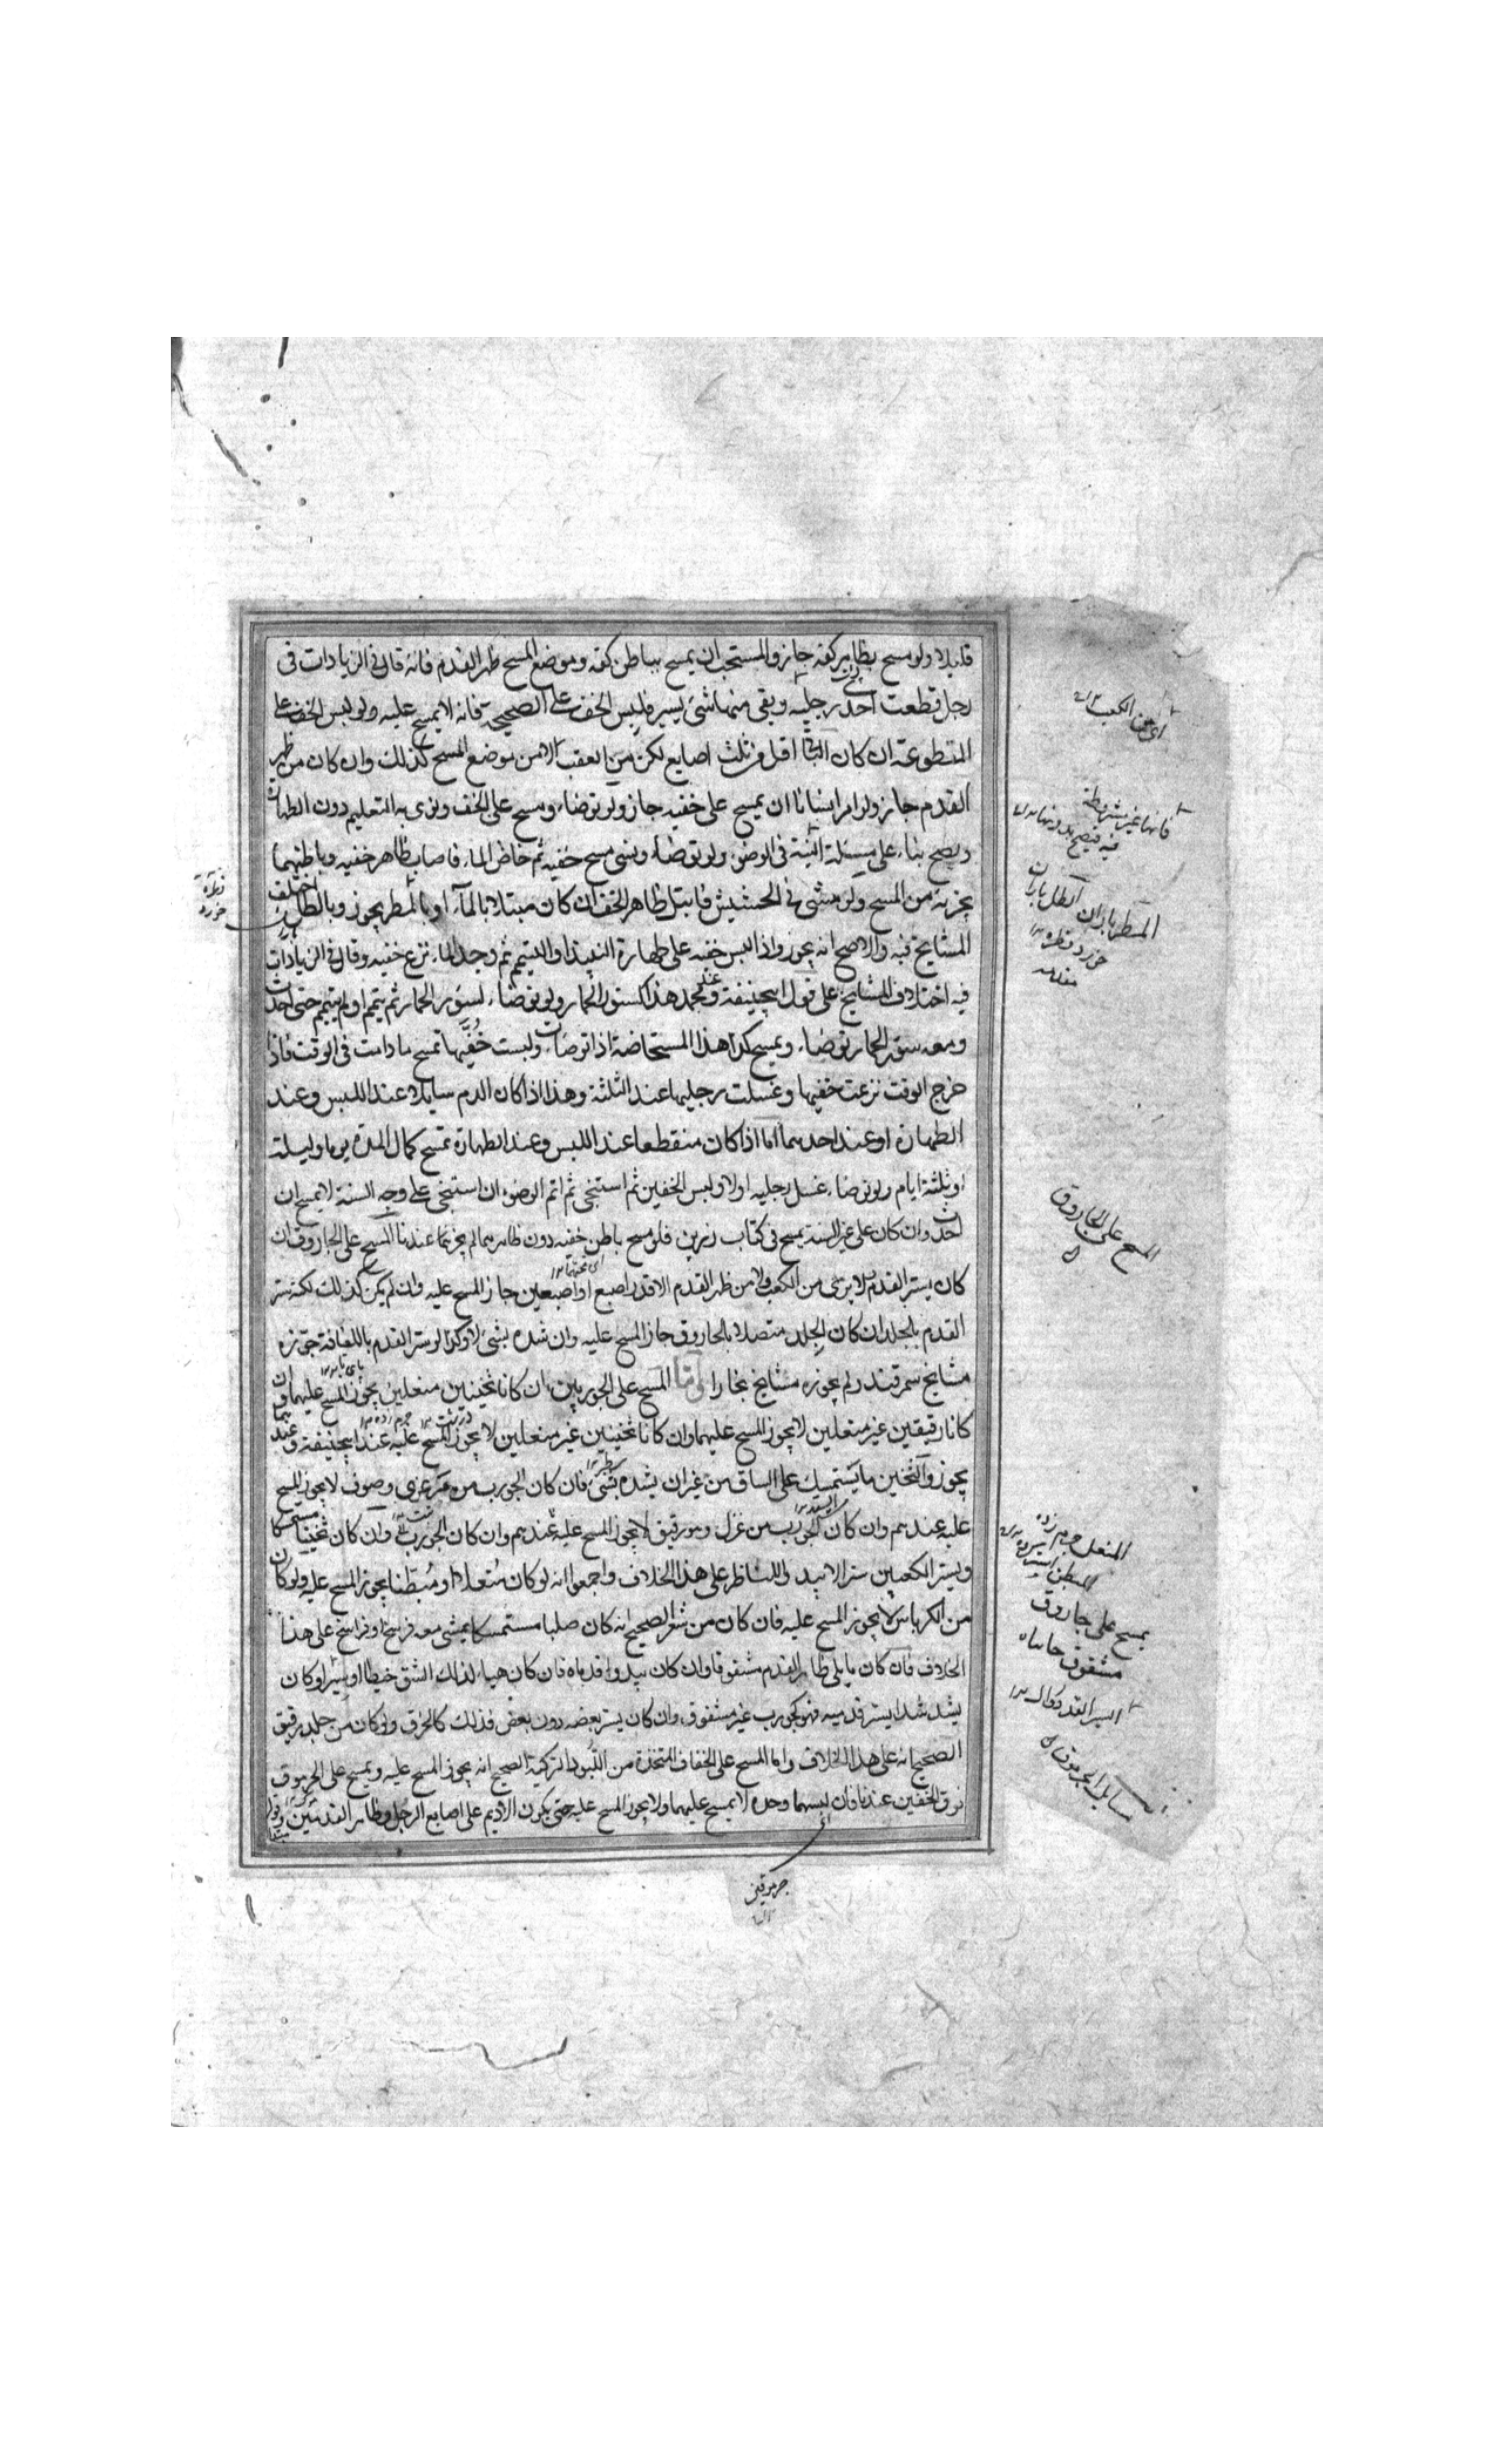 قليلا ولو مسح بظاهر كفه جاز والمستحب ان يمسح بباطن كفه وموضع المسح ظهر القدم فانه قال في الزيادات في
رجل قطعت احدى رجليه وبقى منها شئ يسير فلبس الخف على الصحيحة فانه لا يمسح عليه ولو لبس الخف على
المقطوعة ان كان الباقى اقل من ثلث اصابع لكن من العقب لا من موضع المسح كذلك وان كان من ظهر
القدم جاز ولو امر انسانا ان يمسح على خفيه جاز ولو توضاء ومسح على الخف ونوى به التعليم دون الطهارة
يصح بناء على مسئلة النية فى الوضوء ولو توضاء ونسى مسح خفيه ثم خاض الماء فاصاب ظاهر خفيه وباطنهما
يجزيه من المسح ولو مشى في الحشيش فابتل ظاهر الخف ان كان مبتلا بالماء او بالمطر يجوز وبالطل اختلف
المشايخ فيه والاصح انه يجوز واذا لبس خفيه على طهارة النبيذ او التيمم ثم وجد الماء نزع خفيه وقال في الزيادات
فيه اختلاف المشايخ على قول ابيحنيفة وعند محمد هذا كسؤر الحمار ولو توضاء بسؤر الحمار ثم تيمم او لم يتيمم حتى احدث
ومعه سؤر الحمار توضاء ويمسح كذا هذا المستحاضة اذا توضات ولبست خفيها تمسح ما دامت فى الوقت فاذا
خرج الوقت نزعت خفيها وغسلت رجليها عند الثلثة وهذا اذا كان الدم سايلا عند اللبس وعند
الطهارة او عند احدهما اما اذا كان منقطعا عند اللبس وعند الطهارة تمسح كمال المدة يوما وليلة
او ثلثة ايام ولو توضاء غسل رجليه اولا ولبس الخفين ثم استنجى ثم اتم الوضوء ان استنجى على وجه السنة لا يمسح ان
احدث وان كان على غير السنة يمسح فى كتاب رزين فلو مسح باطن خفيه دون ظاهرهما لم يجز عندنا المسح على الجاروق ان
كان يستر القدم ولا يرى من الكعب ولا من ظهر القدم الا قدر اصبع او اصبعين جاز المسح عليه وان لم يكن كذلك لكنه ستر
القدم بالجلد ان كان الجلد متصلا بالجاروق جاز المسح عليه وان شده بشئ لا وكذا لو ستر القدم باللفافة جوزه
مشايخ سمرقند ولم يجوزه مشايخ بخارا واما المسح على الجوربين ان كانا ثخينين منعلين يجوز المسح عليهما وان
كانا رقيقين غير منعلين لا يجوز المسح عليهما وان كانا ثخينين غير منعلين لا يجوز المسح عليه عند ابيحنيفة وعندهما
يجوز والثخين ما يستمسك على الساق من غير ان يشده بشئ فان كان الجورب من مرعزى وصوف لا يجوز المسح
عليه عندهم وان كان الجورب من غزل وهو رقيق لا يجوز المسح عليه عندهم وان كان الجورب وان كان ثخينا مستمسكا
ويستر الكعبين سترا لا يبدو للناظر على هذا الخلاف واجمعوا انه لو كان منعلا او مبطنا يجوز المسح عليه ولو كان
من الكرباس لا يجوز المسح عليه فان كان من شعر الصحيح انه كان صلبا مستمسكا يمشى معه فرسخا او فراسخ على هذا
الخلاف فان كان ما يلى ظاهر القدم مشقوقا وان كان يبدوا قدماه فان كان هيأ لذلك الشق خيطا او سيرا وكان
يشد شدا يستر قدميه فهو كجورب غير مشقوق وان كان يستر بعضه دون بعض فذلك كالخرق ولو كان من جلد رقيق
الصحيح انه على هذا الخلاف واما المسح على الخفاف المتخذة من اللبود التركية الصحيح انه يجوز المسح عليه ويمسح على الجرموق
فوق الخفين عندنا فان لبسهما وحده لا يمسح عليهما ولا يجوز المسح عليه حتى يكون الاديم على اصابع الرجل وظاهر القدمين
اى من الكعب
فانها غير مشروطة
فيه فيصح بدونها
المطر باران الطل باران
خورد قطره
المسح على الجاروق
يمسح على جاروق
مشقوق
السير القد دوال
مسايل الجرموق
جرموقين